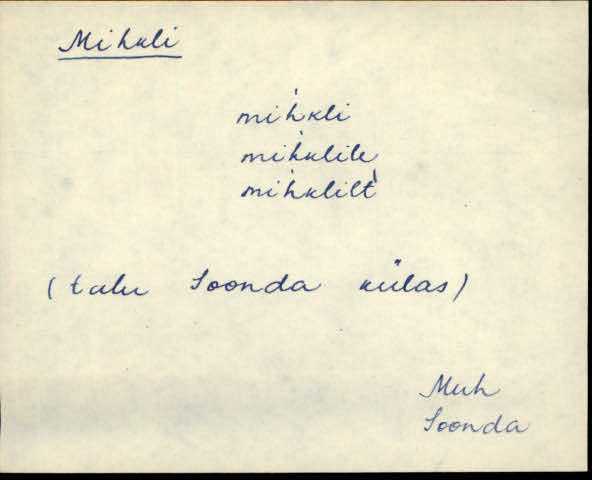 Mihkli
mìhkli
mìhklile
mìhklilt̀
(talu Soonda külas)
Muh
Soonda